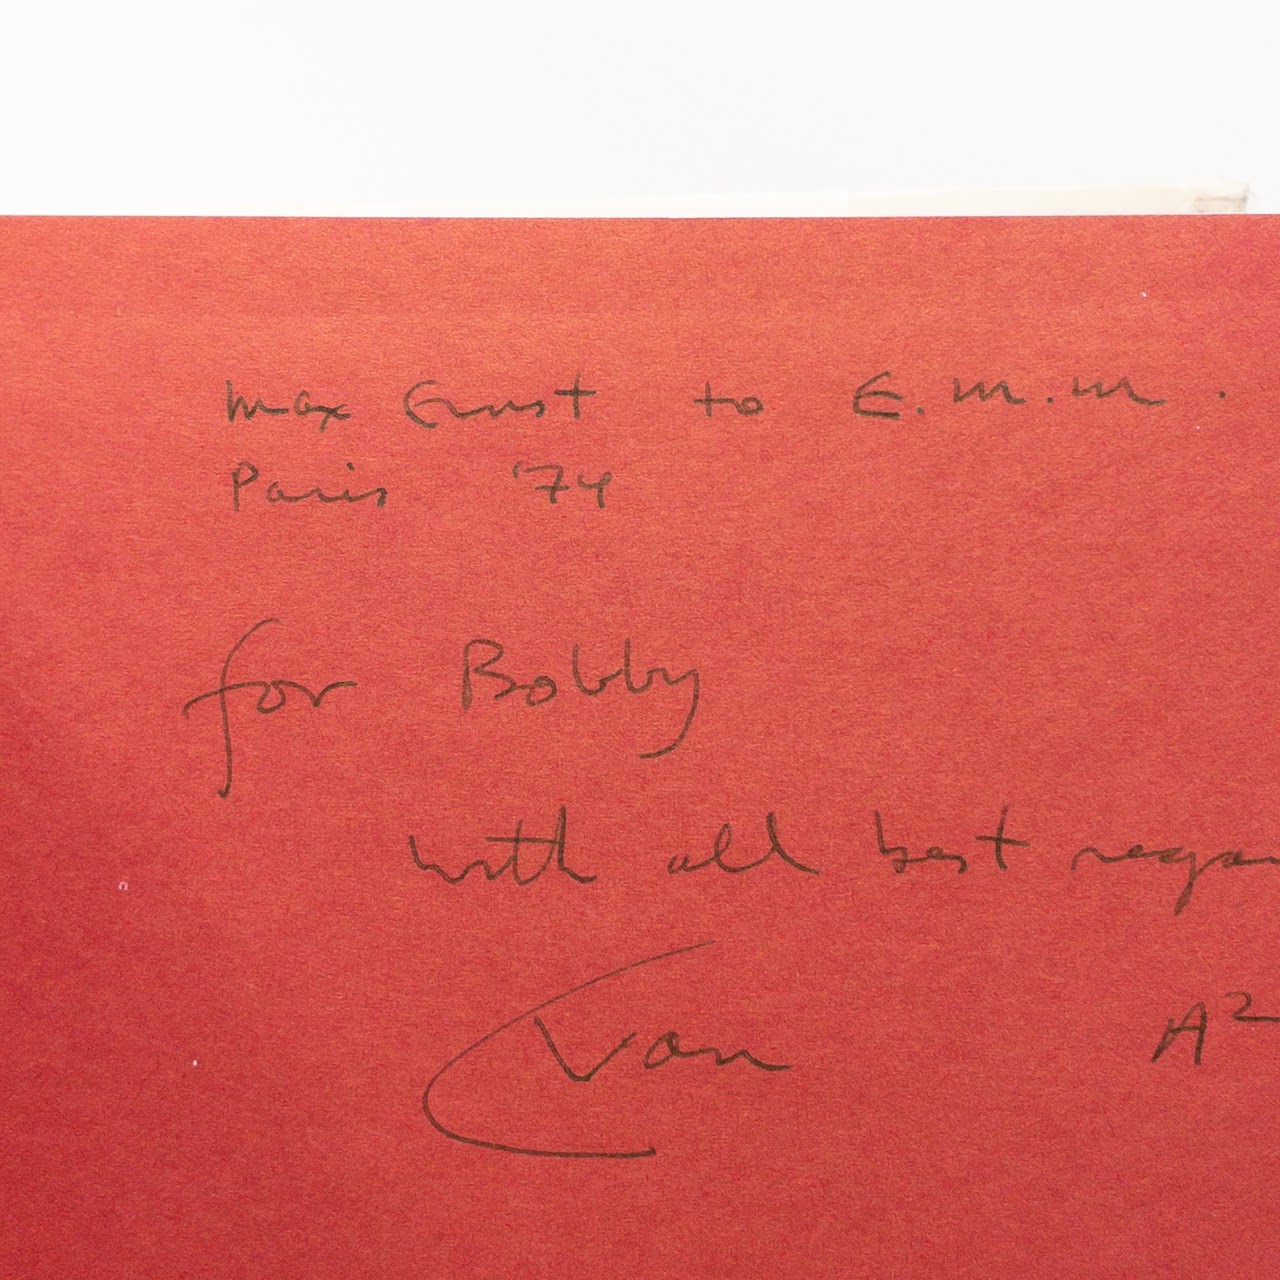 Max Ernst to E.M.M.
Paris '74
for Bobby
with all best regar
Evan A²